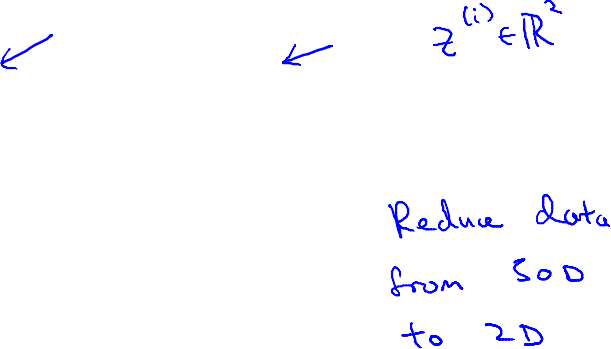 z^(i) ∈ ℝ^2
Reduce data
from 50D
to 2D